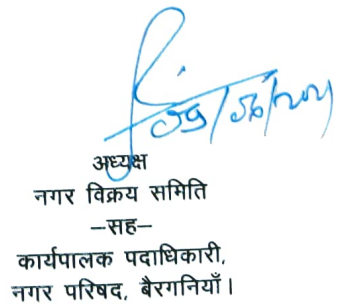 अध्यक्ष
नगर विक्रय समिति
–सह–
कार्यपालक पदाधिकारी,
नगर परिषद, बैरगनियाँ।